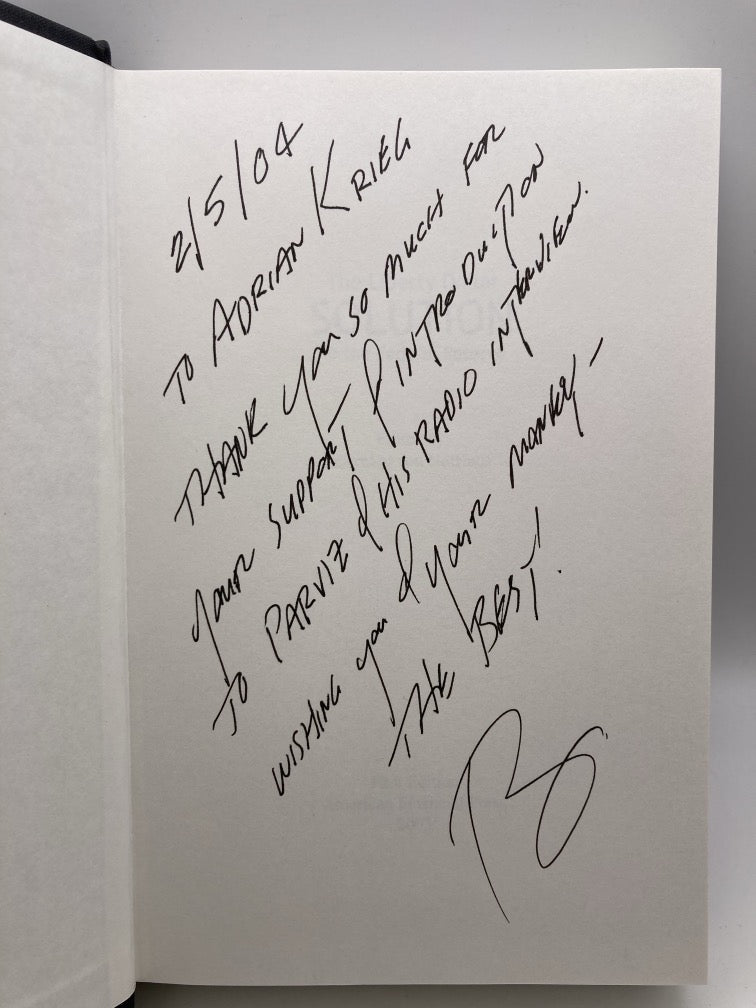 2/5/04
TO ADRIAN KRIEG
THANK you SO MUCH FOR
your SUPPORT & INTRODUCTION
TO PARVIZ & HIS RADIO INTERVIEW.
WISHING you & your MONKEY –
THE BEST!
SOLUTION